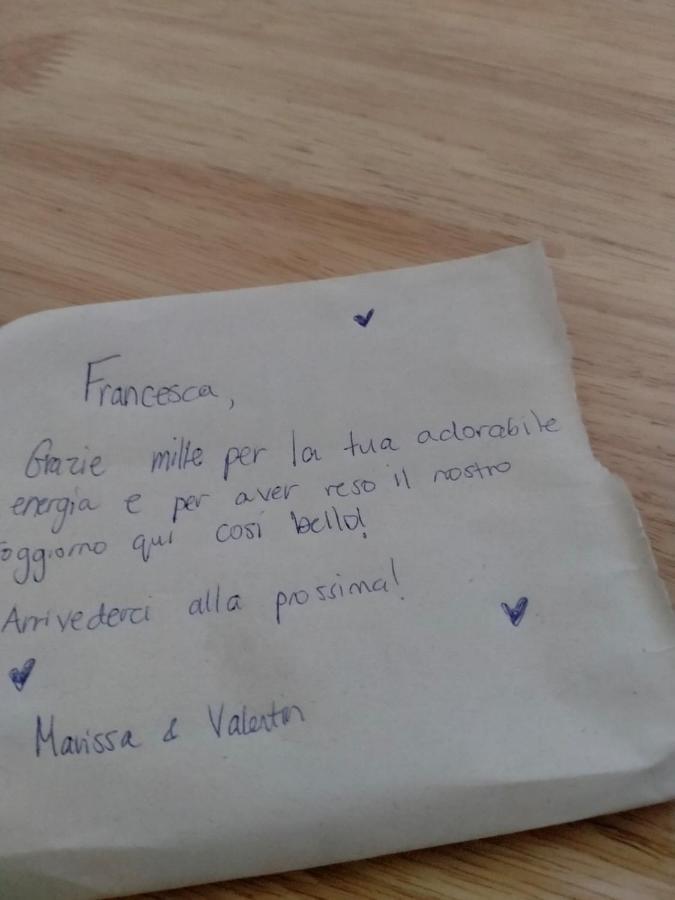 Francesca,
Grazie mille per la tua adorabile
energia e per aver reso il nostro
oggiorno qui così bello!
Arrivederci alla prossima!
Marissa & Valentin